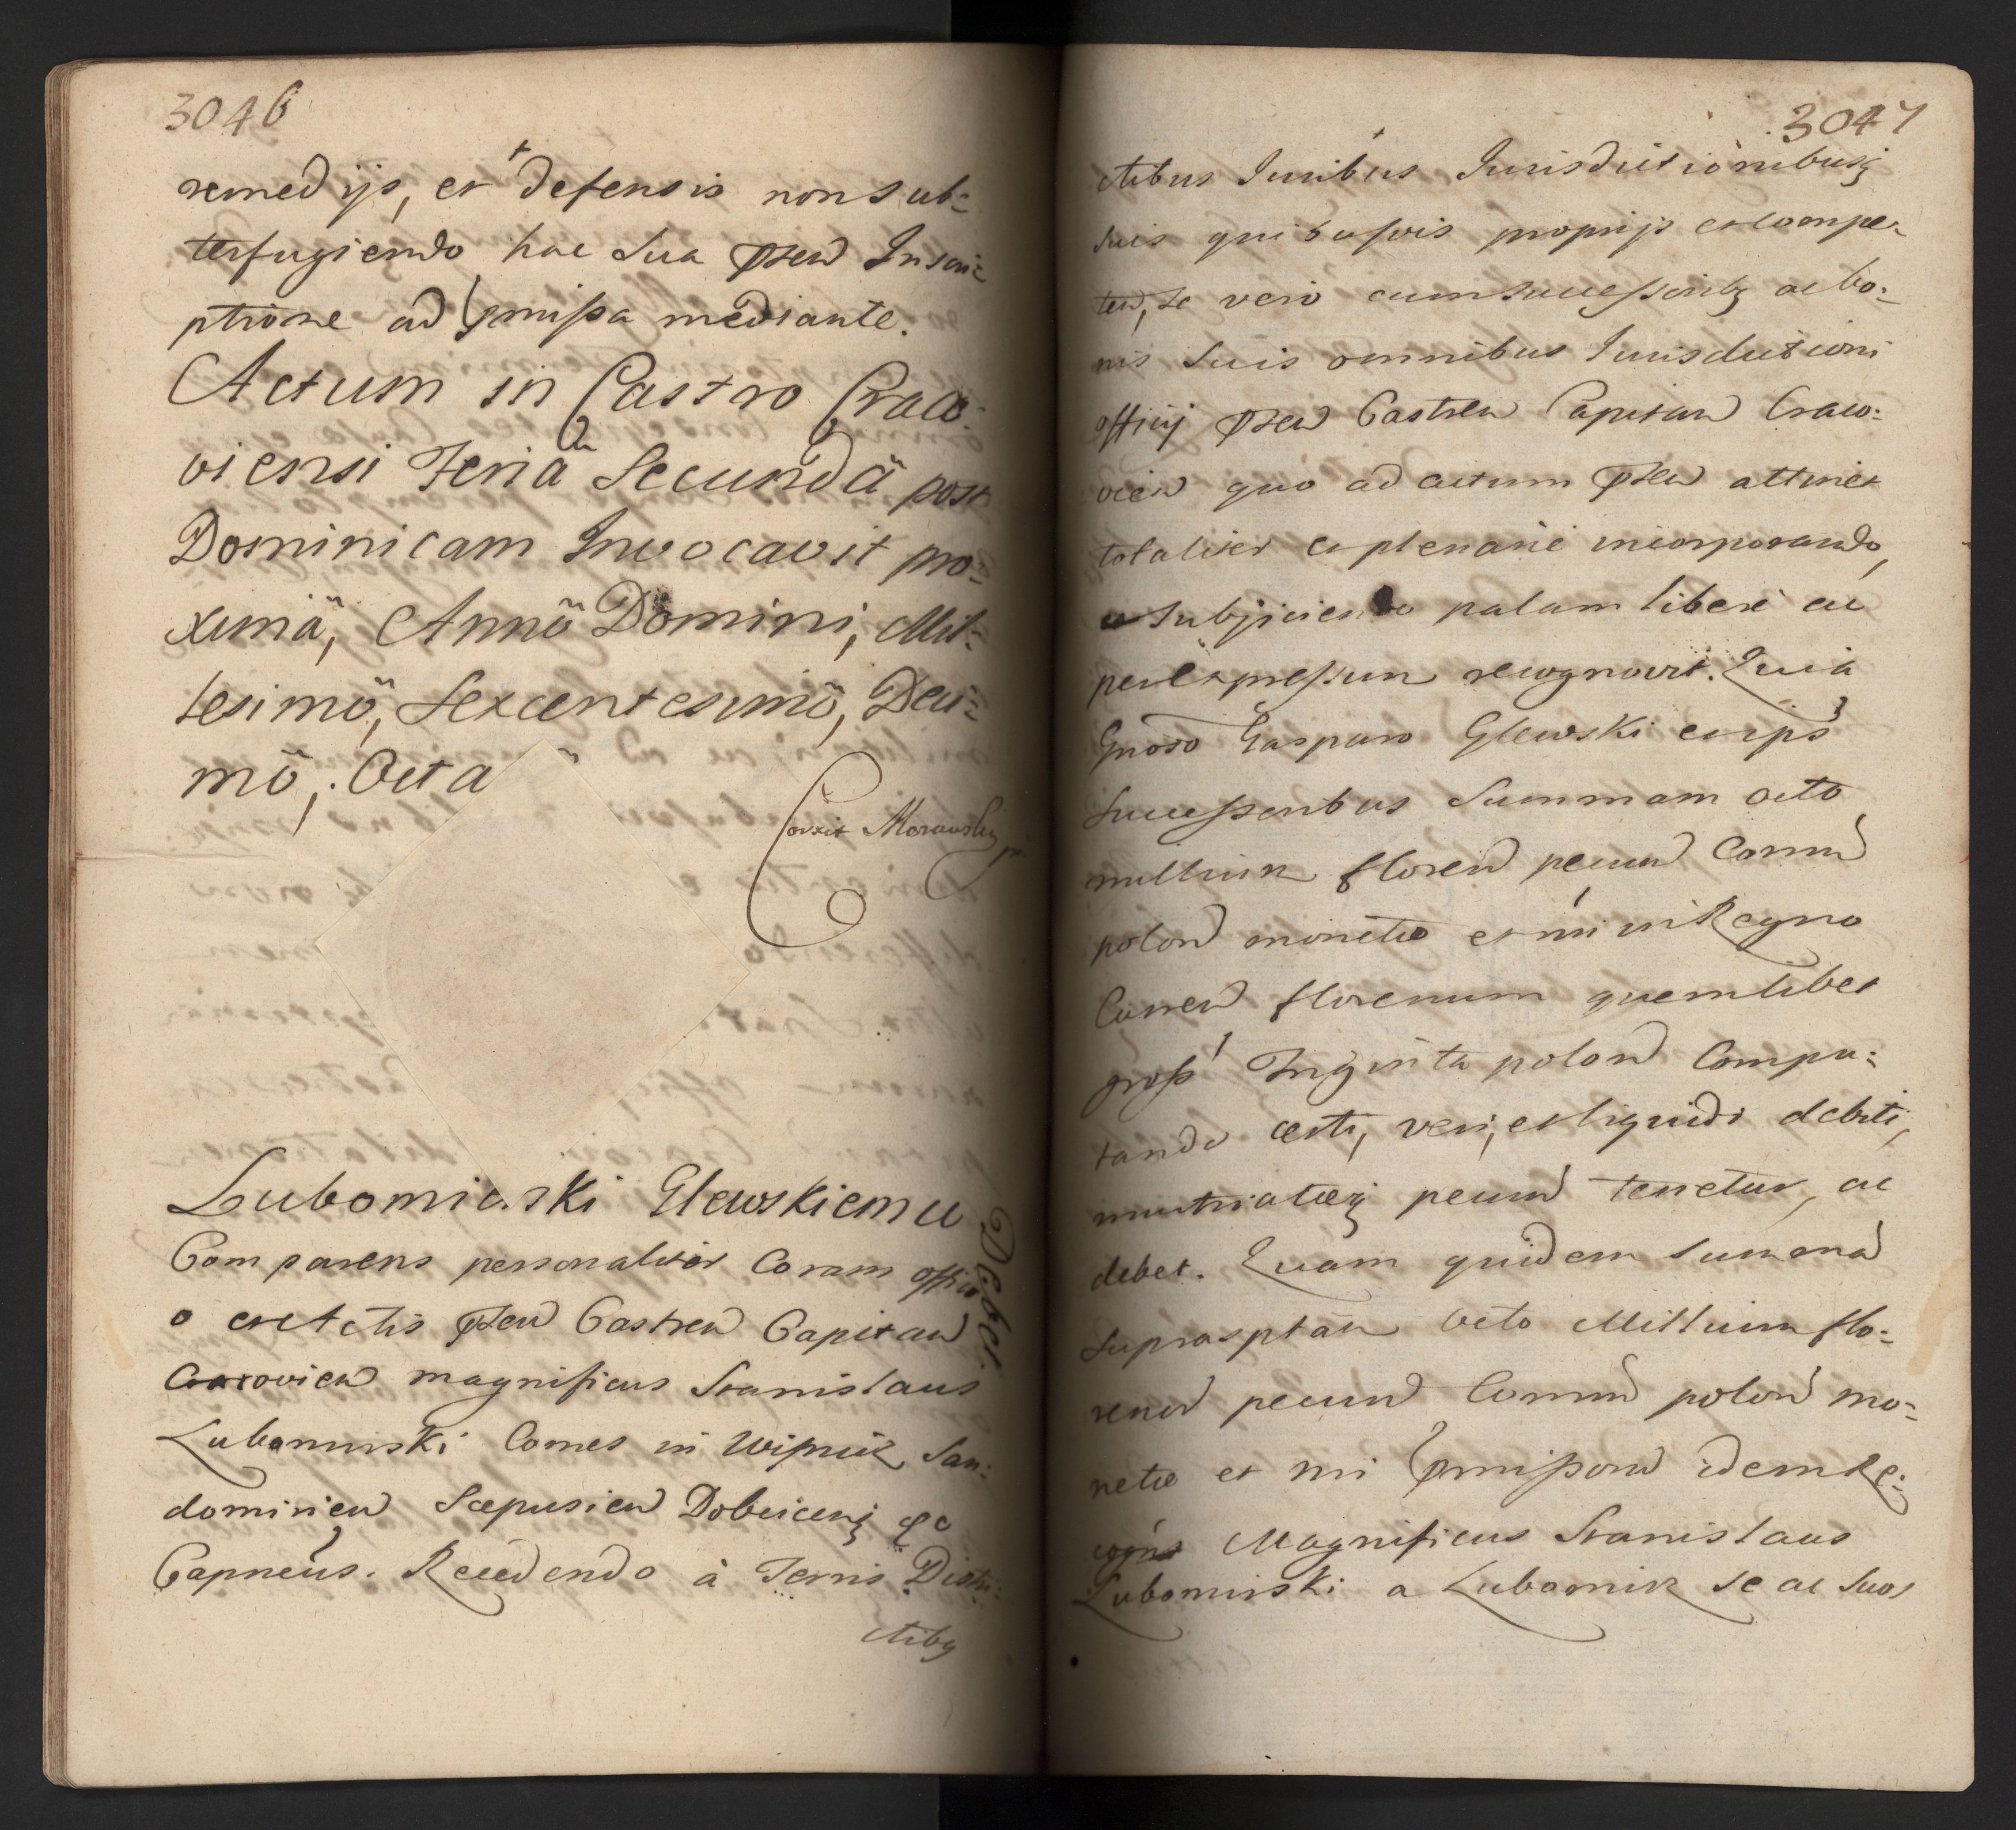 3046
remedijs, et defensis non sub=
terfugiendo hac Sua pñsen Inscri=
ptione ad pmissa mediante.
Actum in Castro Craco=
viensi Feria Secunda post
Dominicam Invocavit pro=
xima, Anno Domini, Mil=
lesimo, Sexcentesimo, Deci=
mo, Octa
Correxit Morawsky
Lubomirski Glewskiemu
Debet
Comparens personaliter Coram offici
o et Actis pñsen Castren Capitan
Cracovien magnificus Stanislaus
Lubomirski Comes in Wisnicz, San=
domirien Scepusien Dobcicensq &c
Capneus. Recedendo à Terris Distri=
ctibq
3047
ctibus Juribus Jurisdictionibusq
suis quibusvis proprijs et compe=
ten, se vero cum successoribq ac bo=
nis Suis omnibus Jurisdictioni
officij pñsen Castren Capitan Craco=
vien quo ad actum pñsen attinet
totaliter et plenarie incorporando,
et subjiciendo palam libere ac
per expressum recognovit. Quia
Gnoso Gasparo Glewski eiusqs
Successoribus Summam octo
millium floren pecun Comun
polon monetæ et nri in Regno
Curren florenum quemlibet
gross Triginta polon Compu=
tando certi, veri, et liquidi debiti,
mutuatæq pecun tenetur, ac
debet. Quam quidem summa
suprascptam octo Millium flo=
renor pecun Comun polon mo=
netæ et nri pmissoru idem Re=
cogns Magnificus Stanislaus
Lubomirski a Lubomirz se ac suos